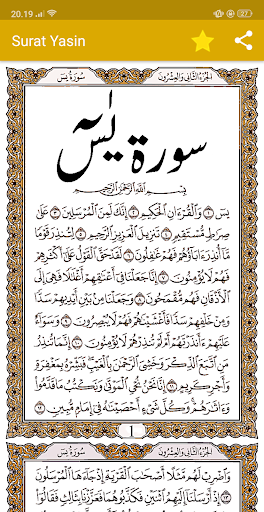 20.19
27
Surat Yasin
الجزء الثاني والعشرون
سورة يس
سورة يس
بسم الله الرحمن الرحيم
يس ١ والقرءان الحكيم ٢ إنك لمن المرسلين ٣ على
صراط مستقيم ٤ تنزيل العزيز الرحيم ٥ لتنذر قوما
ما أنذر ءاباؤهم فهم غافلون ٦ لقد حق القول على أكثرهم
فهم لا يؤمنون ٧ إنا جعلنا في أعناقهم أغلالا فهي إلى
الأذقان فهم مقمحون ٨ وجعلنا من بين أيديهم سدا
ومن خلفهم سدا فأغشيناهم فهم لا يبصرون ٩ وسواء
عليهم ءأنذرتهم أم لم تنذرهم لا يؤمنون ١٠ إنما تنذر
من اتبع الذكر وخشي الرحمن بالغيب فبشره بمغفرة
وأجر كريم ١١ إنا نحن نحي الموتى ونكتب ما قدموا
وءاثارهم وكل شيء أحصيناه في إمام مبين ١٢
1
الجزء الثاني والعشرون
سورة يس
واضرب لهم مثلا أصحاب القرية إذ جاءها المرسلون
١٣ إذ أرسلنا إليهم اثنين فكذبوهما فعززنا بثالث فقالوا